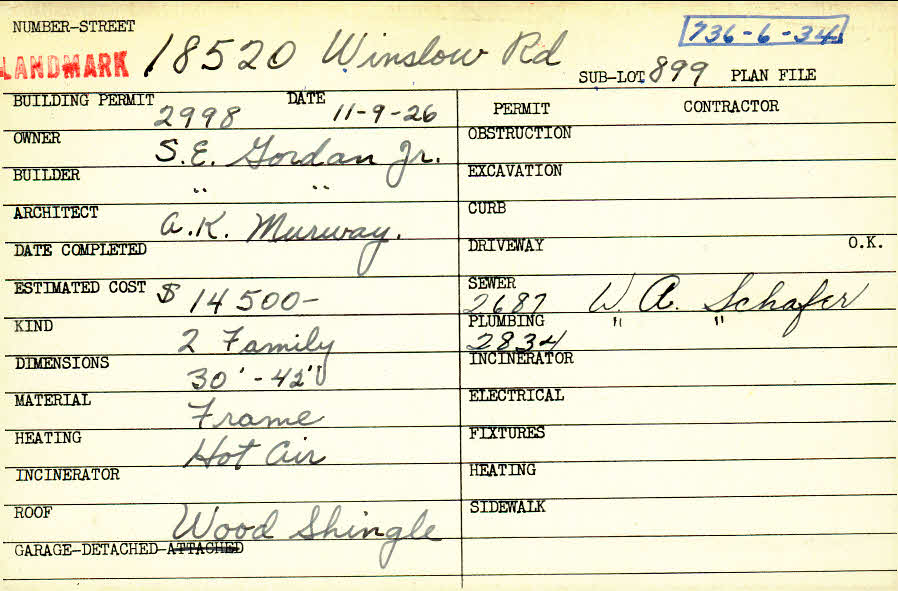 NUMBER-STREET
736-6-34
LANDMARK 18520 Winslow Rd SUB-LOT 899 PLAN FILE
BUILDING PERMIT 2998 DATE 11-9-26
OWNER S.E. Gordan Jr.
BUILDER " "
ARCHITECT A.K. Murway.
DATE COMPLETED
ESTIMATED COST $ 14500-
KIND 2 Family
DIMENSIONS 30' - 42'
MATERIAL Frame
HEATING Hot Air
INCINERATOR
ROOF Wood Shingle
GARAGE-DETACHED-ATTACHED
PERMIT CONTRACTOR
OBSTRUCTION
EXCAVATION
CURB
DRIVEWAY O.K.
SEWER 2687 W. A. Schafer
PLUMBING 2834 " "
INCINERATOR
ELECTRICAL
FIXTURES
HEATING
SIDEWALK